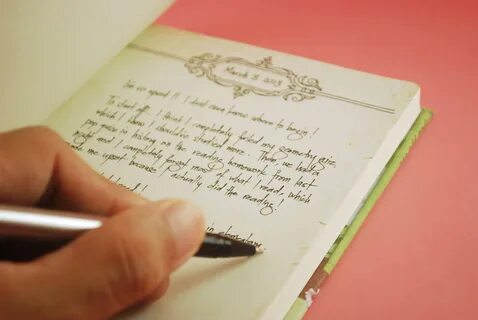 March 3, 2013
I'm so upset! I don't even know where to begin!
To start off, I think I completely failed my geometry quiz,
which I know I should've studied more. Then we had a
pop quiz in history on the reading homework from last
night and I completely forgot most of what I read, which
made me upset because I actually did the reading!
in elementary